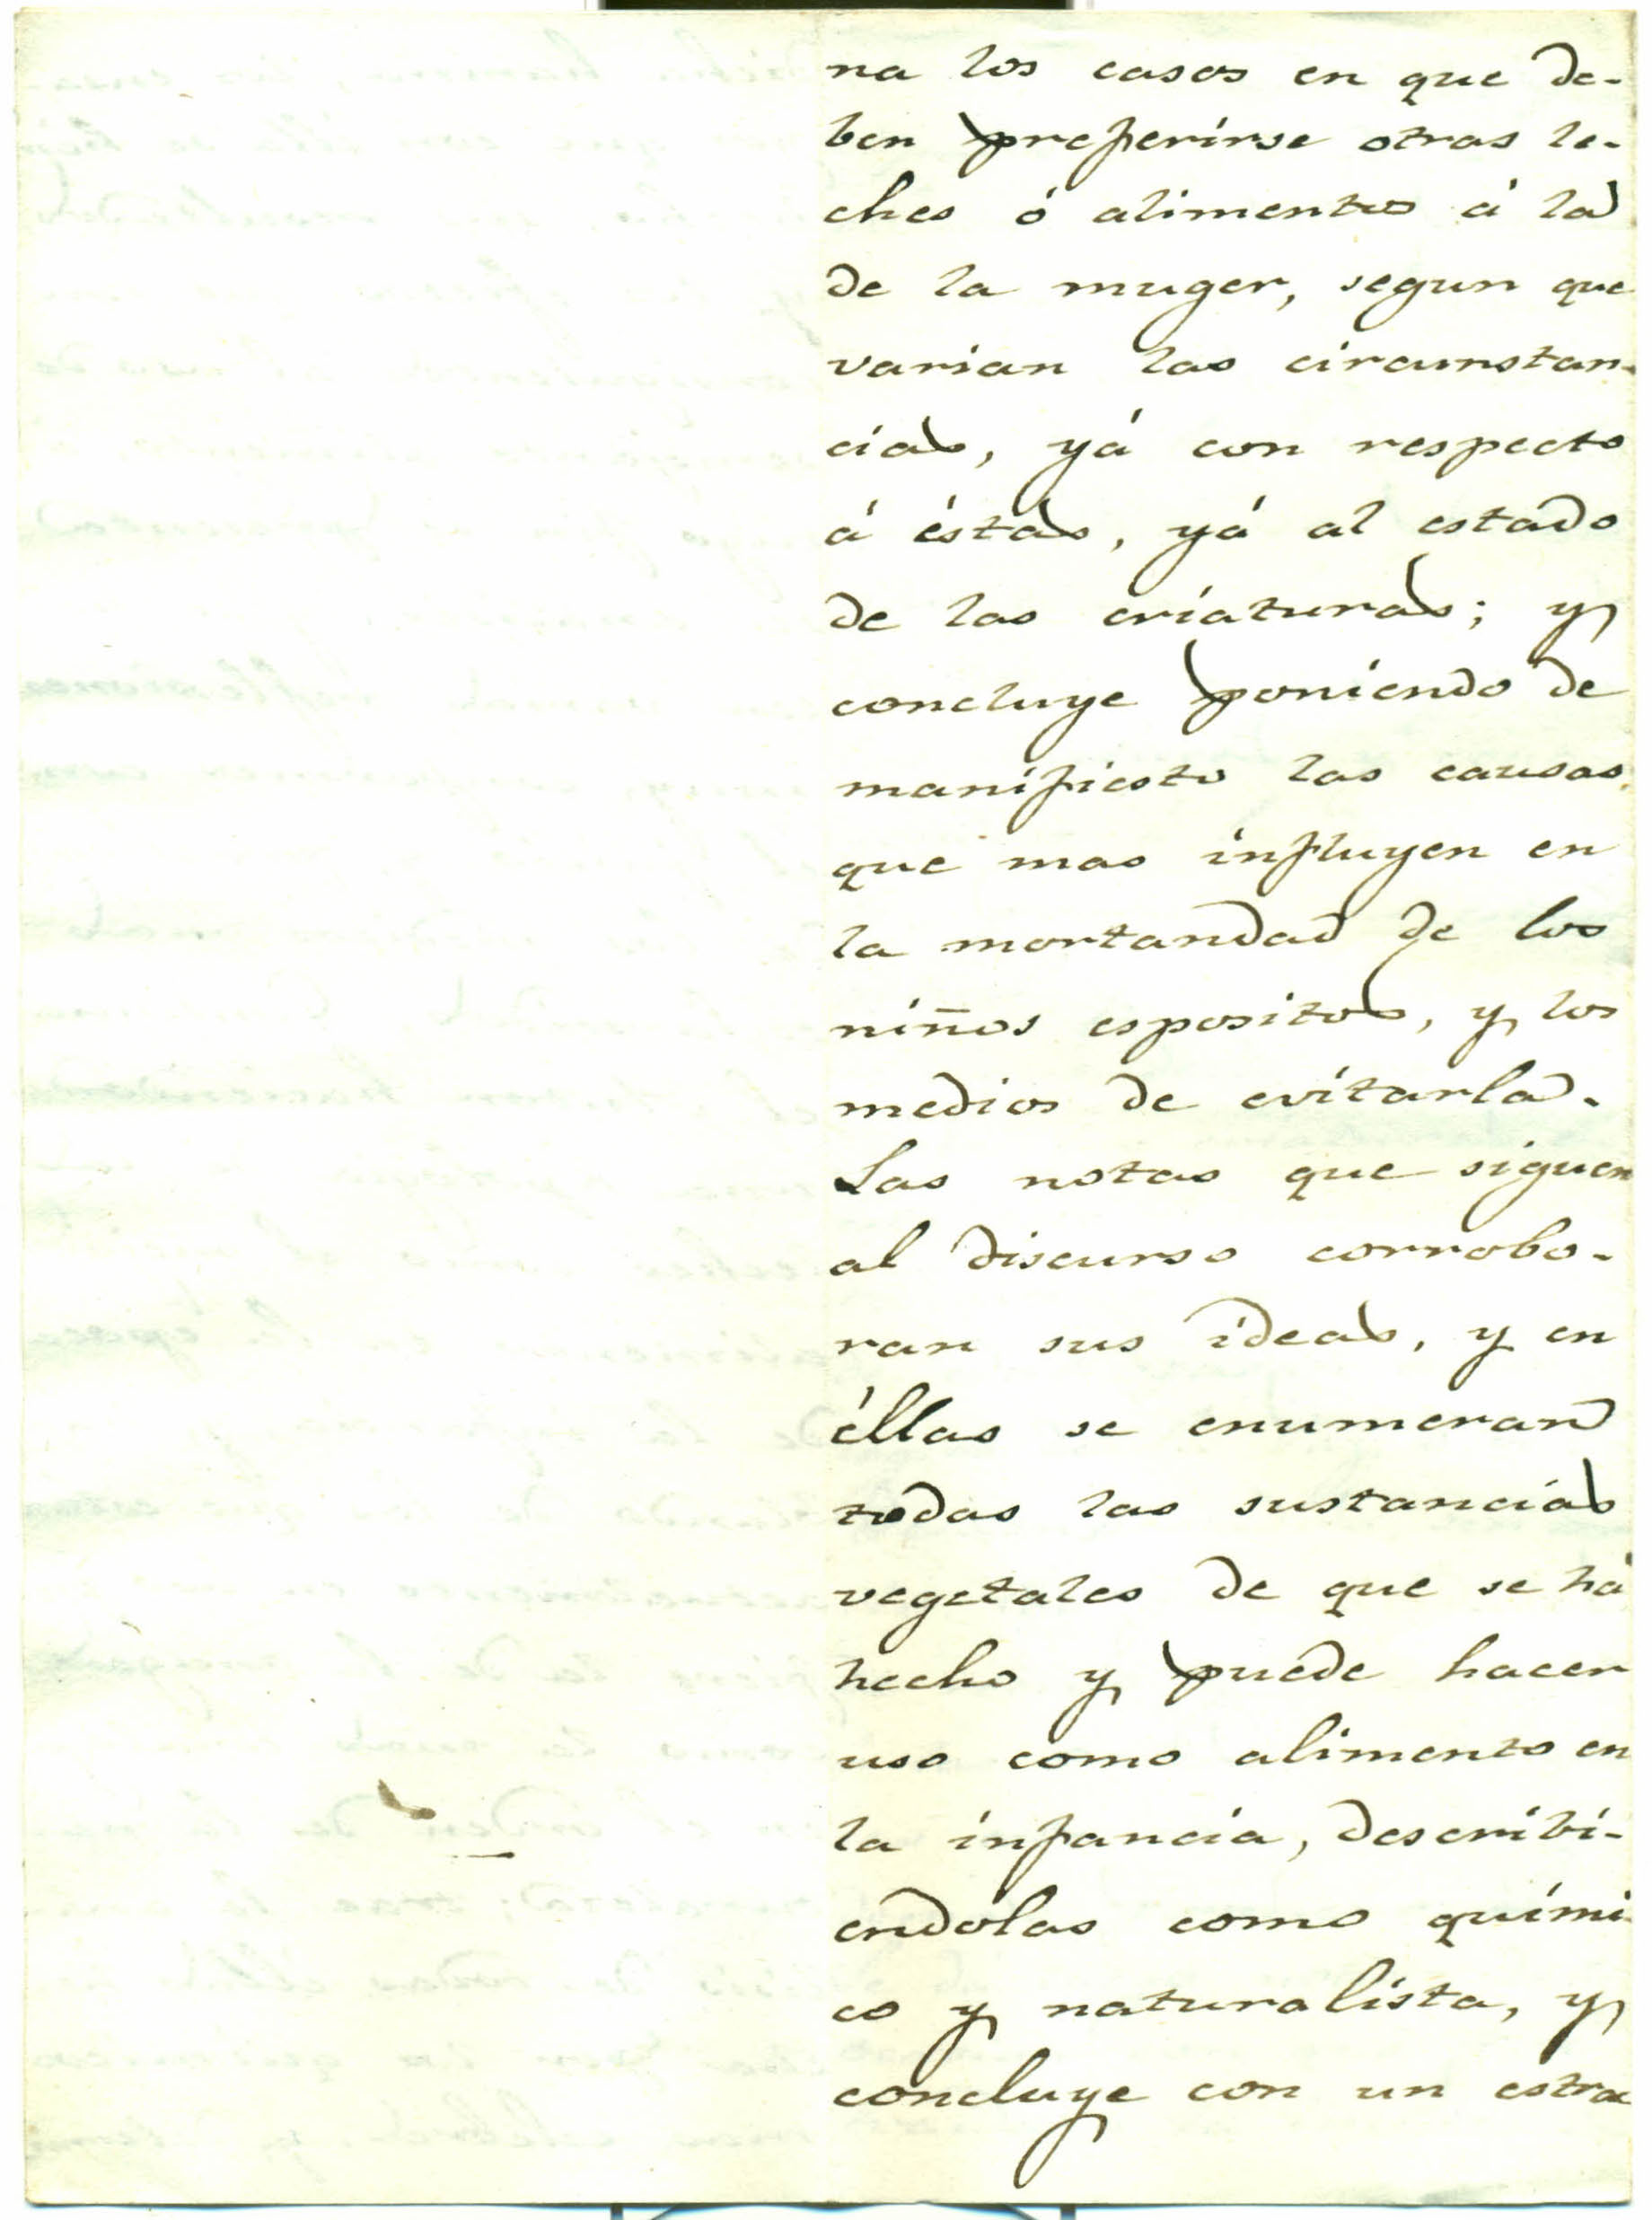 na los casos en que de-
ben preferirse otras le-
ches ó alimentos á la
de la muger, segun que
varian las circunstan-
cias, yá con respecto
á éstas, yá al estado
de las criaturas; y
concluye poniendo de
manifiesto las causas
que mas influyen en
la mortandad de los
niños espositos, y los
medios de evitarla.
Las notas que siguen
al discurso corrobo-
ran sus ideas, y en
éllas se enumeran
todas las sustancias
vegetales de que se há
hecho y puede hacer
uso como alimento en
la infancia, describi-
endolas como quími-
co y naturalista, y
concluye con un estrac